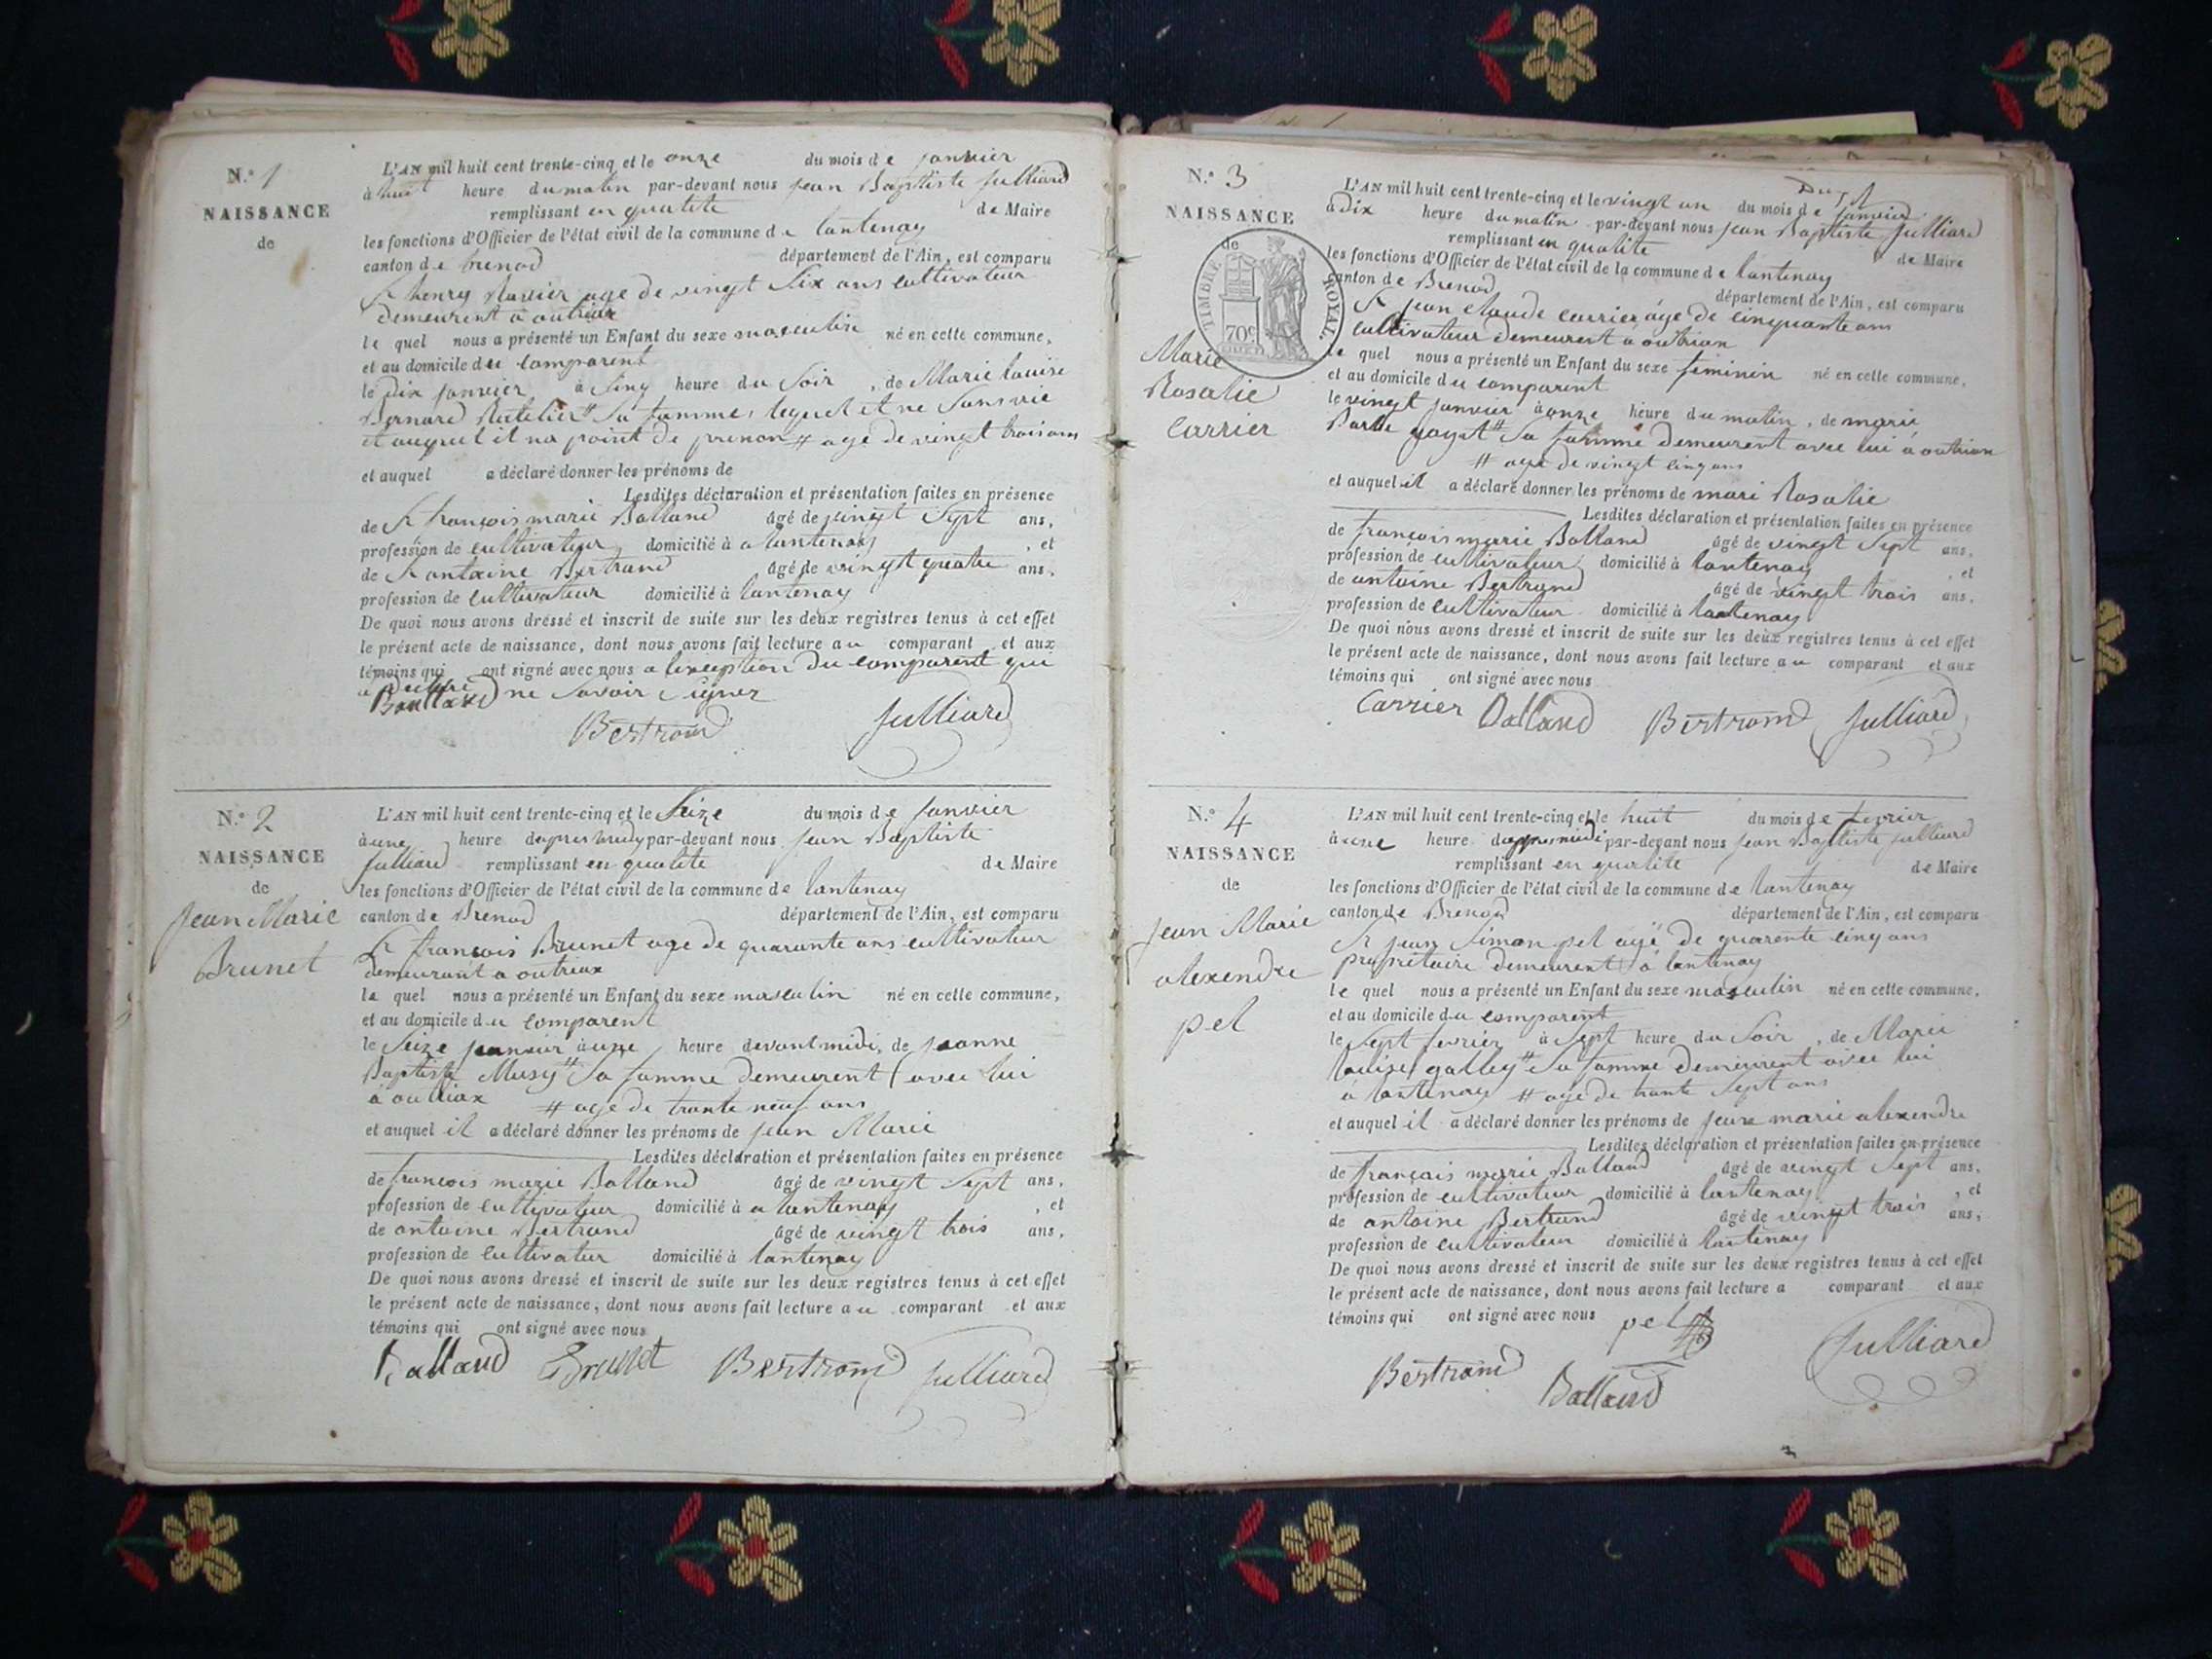 N.° 1
NAISSANCE
de
L'AN mil huit cent trente-cinq et le onze du mois de janvier
à huit heure du matin par-devant nous jean Baptiste Julliard
remplissant en qualite de Maire
les fonctions d'Officier de l'état civil de la commune de lantenay
canton de brenod département de l'Ain, est comparu
Sr henry Ravier age de vingt Six ans cultivateur
demeurent à outriax
le quel nous a présenté un Enfant du sexe masculin né en cette commune,
et au domicile du comparent
le Dix janvier à Sinq heure du Soir, de Marie louise
Bernard # Sa famme, lequel et ne Sans vie
et auquel il na point de prenon # age de vingt trois ans
et auquel a déclaré donner les prénoms de
Lesdites déclaration et présentation faites en présence
de Sr françois marie Balland âgé de vingt Sept ans,
profession de cultivateur domicilié à a lantenay, et
de Sr antoine Bertrand âgé de vingt quatre ans,
profession de cultivateur domicilié à lantenay
De quoi nous avons dressé et inscrit de suite sur les deux registres tenus à cet effet
le présent acte de naissance, dont nous avons fait lecture au comparant et aux
témoins qui ont signé avec nous a lexception du comparent qui
a declare ne Savoir Signer
Balland
Bertrand Julliard
N.° 2
NAISSANCE
de
Jean Marie
Brunet
L'AN mil huit cent trente-cinq et le Seize du mois de janvier
à une heure dapres midy par-devant nous jean Baptiste
Julliard remplissant en qualite de Maire
les fonctions d'Officier de l'état civil de la commune de lantenay
canton de Brenod département de l'Ain, est comparu
Sr françois Brunet age de quarante ans cultivateur
demeurant a outriax
le quel nous a présenté un Enfant du sexe masculin né en cette commune,
et au domicile du comparent
le Seize janvier à une heure devant midi, de jeanne
Baptiste Musy # Sa famme demeurent avec lui
à outriax # age de trante neuf ans
et auquel il a déclaré donner les prénoms de jean Marie
Lesdites déclaration et présentation faites en présence
de françois marie Balland âgé de vingt Sept ans,
profession de cultivateur domicilié à a lantenay, et
de antoine Bertrand âgé de vingt trois ans,
profession de cultivateur domicilié à lantenay
De quoi nous avons dressé et inscrit de suite sur les deux registres tenus à cet effet
le présent acte de naissance, dont nous avons fait lecture au comparant et aux
témoins qui ont signé avec nous
Balland Brunet Bertrand Julliard
N.° 3
NAISSANCE
de
TIMBRE ROYAL
70c
Marie
Rosalie
Carrier
L'AN mil huit cent trente-cinq et le vingt un du mois de janvier
à dix heure du matin par-devant nous jean Baptiste Julliard
remplissant en qualite de Maire
les fonctions d'Officier de l'état civil de la commune de lantenay
canton de Brenod département de l'Ain, est comparu
Sr jean claude carrier âgé de cinquante ans
cultivateur demeurent a outriax
le quel nous a présenté un Enfant du sexe feminin né en cette commune,
et au domicile du comparent
le vingt janvier à onze heure du matin, de marie
goyet # Sa famme demeurent avec lui à outriax
# age de vingt cinq ans
et auquel il a déclaré donner les prénoms de mari Rosalie
Lesdites déclaration et présentation faites en présence
de françois marie Balland âgé de vingt Sept ans,
profession de cultivateur domicilié à lantenay, et
de antoine Bertrand âgé de vingt trois ans,
profession de cultivateur domicilié à lantenay
De quoi nous avons dressé et inscrit de suite sur les deux registres tenus à cet effet
le présent acte de naissance, dont nous avons fait lecture au comparant et aux
témoins qui ont signé avec nous
Carrier Balland Bertrand Julliard
N.° 4
NAISSANCE
de
Jean Marie
alexendre
pel
L'AN mil huit cent trente-cinq et le huit du mois de fevrier
à une heure dapres midi par-devant nous jean Baptiste julliard
remplissant en qualite de Maire
les fonctions d'Officier de l'état civil de la commune de lantenay
canton de Brenod département de l'Ain, est comparu
Sr jean Simon pel agé de quarente cinq ans
propriétaire demeurent à lantenay
le quel nous a présenté un Enfant du sexe masculin né en cette commune,
et au domicile du comparent
le Sept fevrier à Sept heure du Soir, de Marie
louise galley # Sa famme demeurent avec lui
à lantenay # age de trante Sept ans
et auquel il a déclaré donner les prénoms de jean marie alexendre
Lesdites déclaration et présentation faites en présence
de français marie Balland âgé de vingt Sept ans,
profession de cultivateur domicilié à lantenay, et
de antoine Bertrand âgé de vingt trois ans,
profession de cultivateur domicilié à lantenay
De quoi nous avons dressé et inscrit de suite sur les deux registres tenus à cet effet
le présent acte de naissance, dont nous avons fait lecture a comparant et aux
témoins qui ont signé avec nous pel
Bertrand Balland Julliard